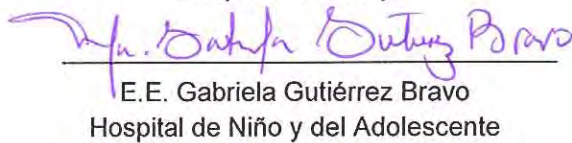 Ma. Gabriela Gutierrez Bravo
E.E. Gabriela Gutiérrez Bravo
Hospital de Niño y del Adolescente